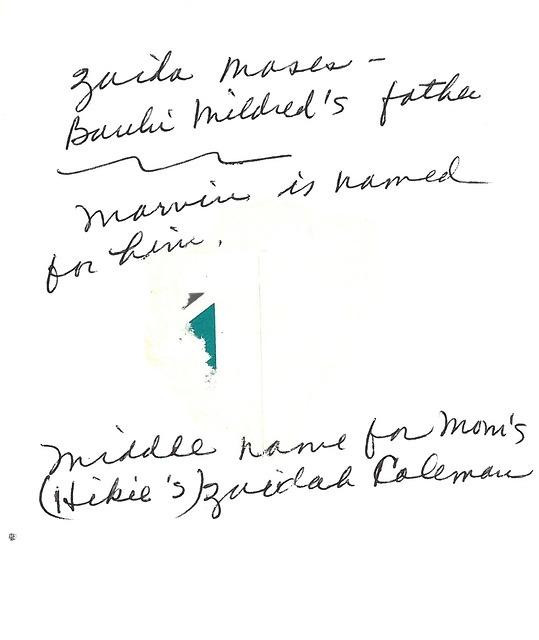 Zaida Moses –
Baubi Mildred's father
Marvin is named
for him.
Middle name for Mom's
(Hikie's) Zaidah Coleman